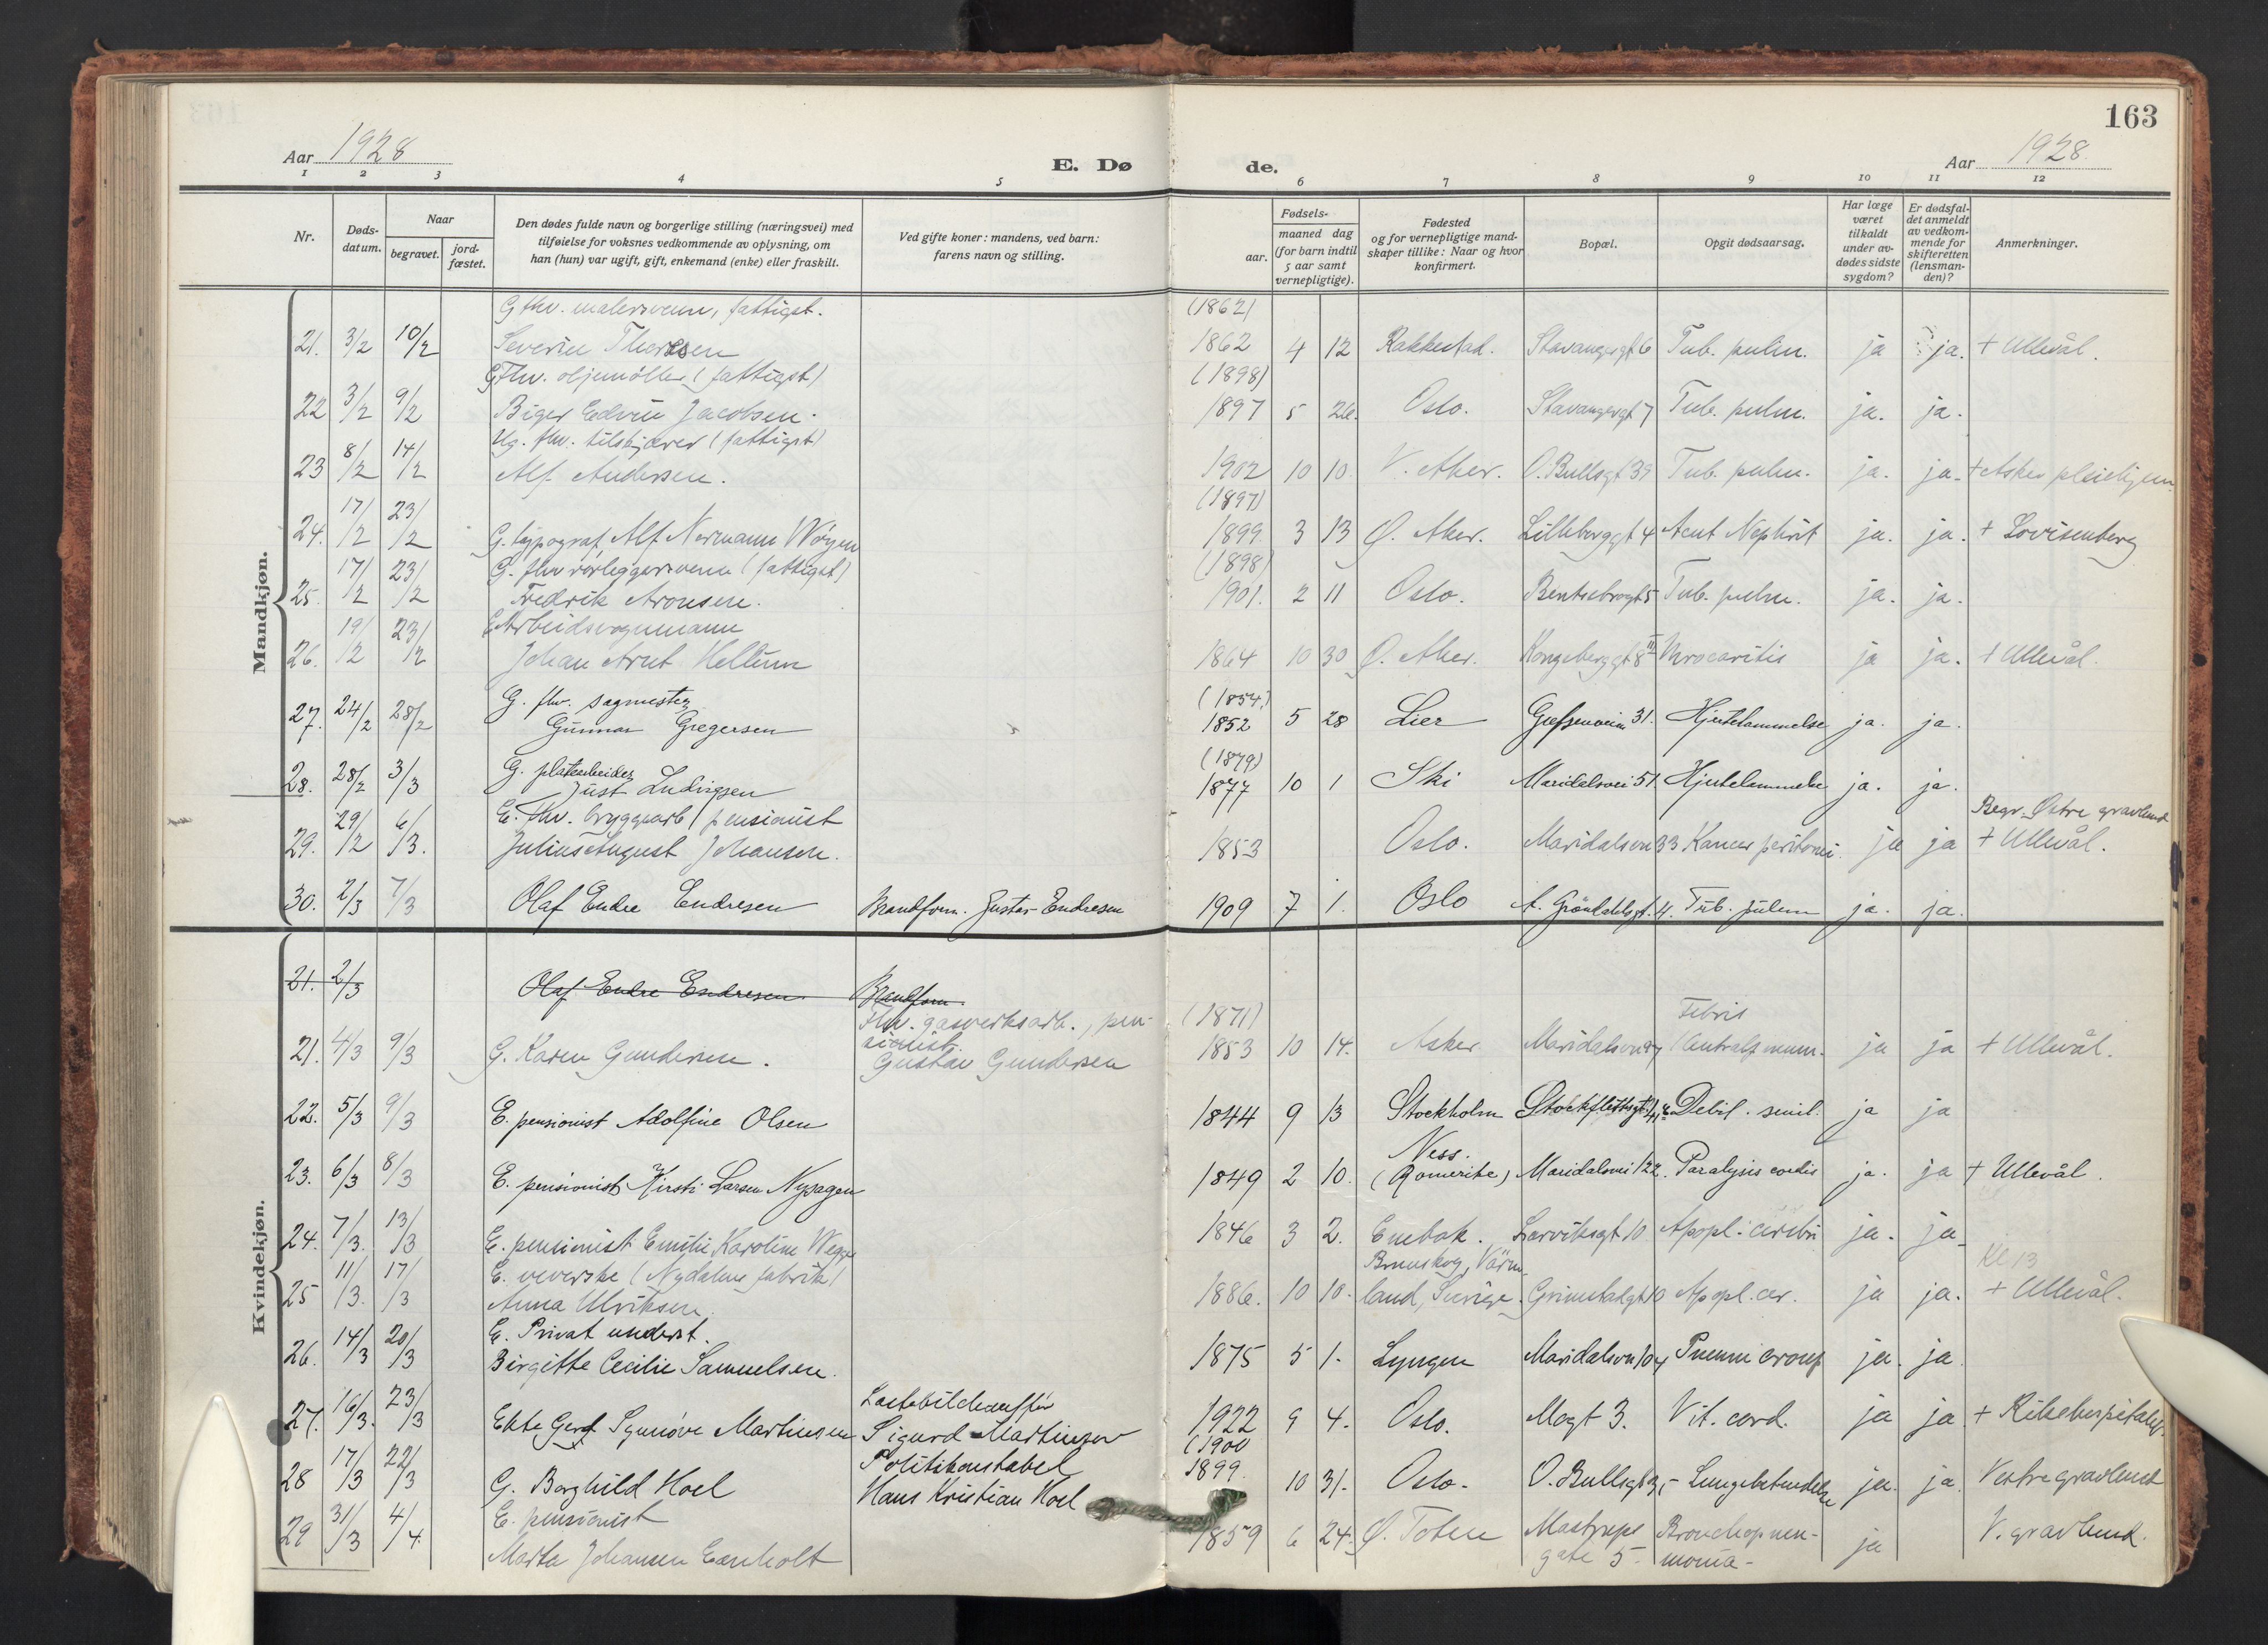 163
Aar 1928
E. Dø
de.
Aar 1928.
1 2 3 4 5 6 7 8 9 10 11 12
Nr.
Døds-
datum.
Naar
begravet.
jord-
fæstet.
Den dødes fulde navn og borgerlige stilling (næringsvei) med
tilføielse for voksnes vedkommende av oplysning, om
han (hun) var ugift, gift, enkemand (enke) eller fraskilt.
Ved gifte koner: mandens, ved barn:
farens navn og stilling.
Fødsels-
aar.
maaned dag
(for barn indtil
5 aar samt
vernepligtige).
Fødested
og for vernepligtige mand-
skaper tillike: Naar og hvor
konfirmert.
Bopæl.
Opgit dødsaarsag.
Har læge
været
tilkaldt
under av-
dødes sidste
sygdom?
Er dødsfal-
det anmeldt
av vedkom-
mende for
skifteretten
(lensman-
den)?
Anmerkninger.
Mandkjøn.
G fhv. malersvenn, fattigst. (1862)
21. 3/2 10/2 Severin Theresen 1862 4 12 Rakkestad. Stavangergt 6 Tub. pulm. ja ja. + Ullevål.
G Fhv. oljemøller (fattigst) (1898)
22 3/2 9/2 Biger Edvin Jacobsen. 1897 5 26. Oslo. Stavangergt 7 Tub. pulm. ja. ja.
Ug. fhv. (fattigst)
23 8/2 14/2 Alf Andersen. 1902 10 10. V. Aker. O. Bullsgt 39 Tub. pulm. ja. ja. + Asker pleiehjem.
(1897)
24. 17/2 23/2 G. typograf Alf Normann Wøyen 1899. 3 13 Ø. Aker. Lilleborggt 4 Acut Nephrit ja. ja. + Lovisenberg
G. fhv rørleggersvenn (fattigst) (1898)
25. 17/2 23/2 Fredrik Aronsen. 1901. 2 11 Oslo. Bentsebrogt 5 Tub. pulm. ja. ja.
E Arbeidsvognmann
26. 19/2 23/2 Johan Arnt Hellum 1864 10 30 Ø. Aker. Kongsberggt 8 II ja ja. + Ullevål.
G. fhv. sagmester (1854)
27. 24/2 28/2 Gunnar Gregersen 1852 5 28 Lier Grefsenveien 31. Hjertelammelse ja. ja.
G. platearbeider (1879)
28. 28/2 3/3 Just Ludvigsen 1877 10 1 Ski Maridalsvei 51. Hjertelammelse ja. ja.
E. Fhv. bryggearb / pensionist Begr. Østre gravlund
29. 29/2 6/3. Julius August Johansen. 1853 Oslo. Maridalsvn 33 Kancer peritonei. ja ja + Ullevål.
30. 2/3 7/3 Olaf Endre Endresen Brandform. Gustav Endresen 1909 7 1. Oslo A. Grøndahlsgt. 4. Tub. pulm ja. ja.
Kvindekjøn.
21. 2/3 Olaf Endre Endresen Brandform.
Fhv. gasverksarb., pen- (1871) Febris
sionist.
21. 4/3 9/3 G. Karen Gundersen. Gustav Gundersen 1853 10 14. Asker ja ja + Ullevål.
22. 5/3 9/3 E. pensionist Adolfine Olsen 1844 9 13 Stockholm Debil. senil. ja ja
Ness.
23. 6/3 8/3 E. pensionist Kirsti Larsen Nysagen 1849 2 10. (Romerike) Maridalsvei 122. Paralysis cordis ja. ja + Ullevål.
24. 7/3. 13/3 E. pensionist Emilie Karoline Wegge 1846 3 2. Enebak. Larviksgt 10 Apopl. cerebri ja. ja
E. veverske (Nydalens fabrik) Brunskog, Värm- Kl 13
25 11/3. 17/3 Anna Ulriksen. 1886. 10 10. land, Sverige. Grimstadgt 10 Apopl. cer. ja ja. + Ullevål.
E. Privat underst.
26. 14/3 20/3 Birgitte Cecilie Samuelsen. 1875 5 1. Lyngen Maridalsvn 104 Pneum croup ja. ja
Lastebilchauffør
27. 16/3. 23/3 Ekte Gerd Synnøve Martinsen Sigurd Martinsen 1922 9 4. Oslo. Mogt 3. Vit. cord. ja ja + Rikshospitalet.
Politikonstabel (1900
28 17/3 22/3 G. Borghild Hoel Hans Kristian Hoel 1899. 10 31. Oslo. O. Bullsgt 35 Lungebetendelse ja. ja. Vestre gravlund
E. pensionist
29 31/3 4/4. Marta Johansen Eenholt 1859 6 24. Ø. Toten Mastrups Bronchopneu- ja V. gravlund.
gate 5. monia-